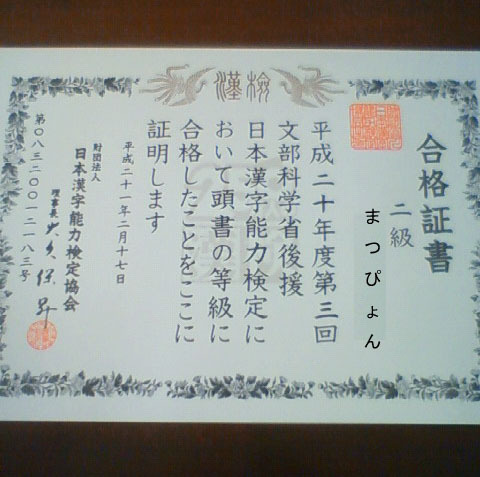 漢検
合格証書
二級
まつぴょん
平成二十年度第三回
文部科学省後援
日本漢字能力検定に
おいて頭書の等級に
合格したことをここに
証明します
平成二十一年二月十七日
財団法人
日本漢字能力検定協会
理事長 大久保昇
第〇八三二〇〇一二一八三号